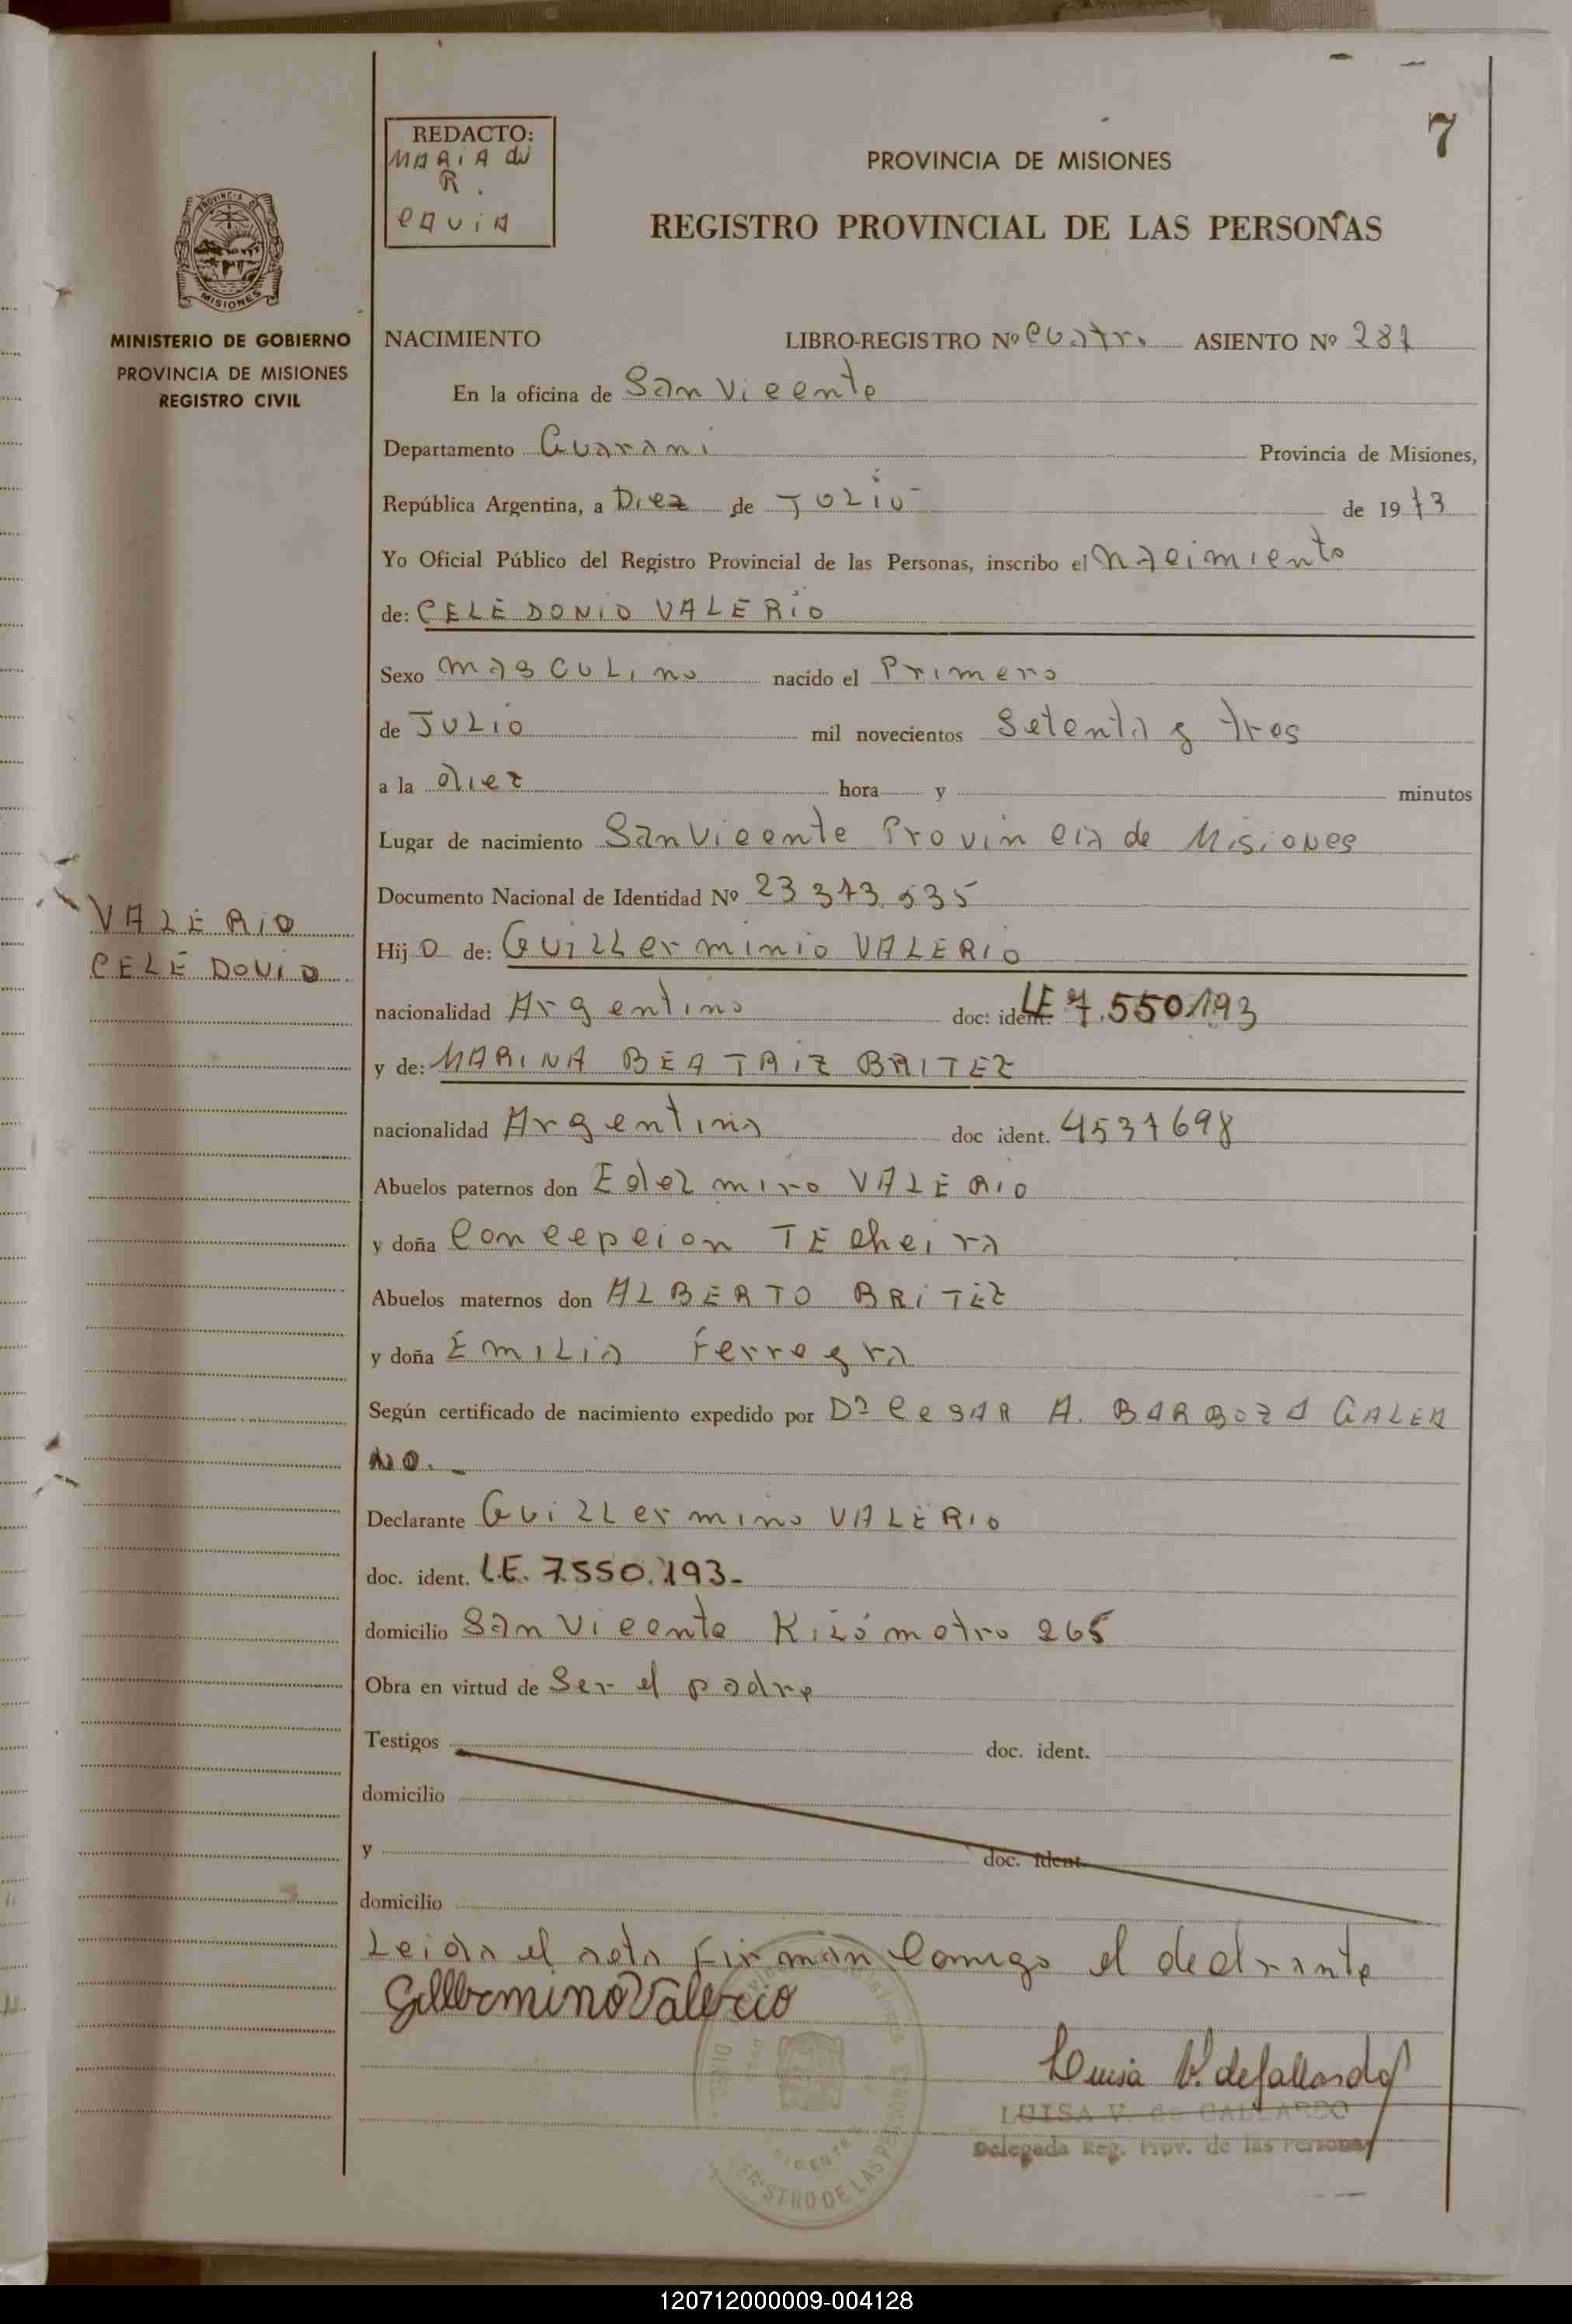 7
REDACTO:
MARIA du
R.
PROVINCIA DE MISIONES
REGISTRO PROVINCIAL DE LAS PERSONAS
PROVINCIA DE
MISIONES
MINISTERIO DE GOBIERNO
PROVINCIA DE MISIONES
REGISTRO CIVIL
NACIMIENTO LIBRO-REGISTRO Nº Cuatro ASIENTO Nº 281
En la oficina de San Vicente
Departamento Guarani Provincia de Misiones,
República Argentina, a Diez de JULIO de 1973
Yo Oficial Público del Registro Provincial de las Personas, inscribo el nacimiento
de: CELEDONIO VALERIO
Sexo masculino nacido el Primero
de JULIO mil novecientos Setenta y tres
a la diez hora y minutos
Lugar de nacimiento San Vicente Provincia de Misiones
Documento Nacional de Identidad Nº 23 373.535
VALERIO
CELEDONIO
Hijo de: Guillerminio VALERIO
nacionalidad Argentino doc: ident. LE 7.550193
y de: MARINA BEATRIZ BRITEZ
nacionalidad Argentina doc ident. 4537698
Abuelos paternos don Edelmiro VALERIO
y doña Concepcion TEcheira
Abuelos maternos don ALBERTO BRITEZ
y doña Emilia Ferreyra
Según certificado de nacimiento expedido por Dº CeSAR A. BARBOZA GALEA
NO.
Declarante Guillermino VALERIO
doc. ident. L.E. 7.550.193-
domicilio San Vicente Kilómetro 265
Obra en virtud de Ser el padre
Testigos doc. ident.
domicilio
y doc. ident.
domicilio
Leida el acta Firman Comigo el declrante
Gillermino Valerio
Luisa V. de Gallardo
LUISA V. de GALLARDO
Delegada Reg. Prov. de las Personas
120712000009-004128